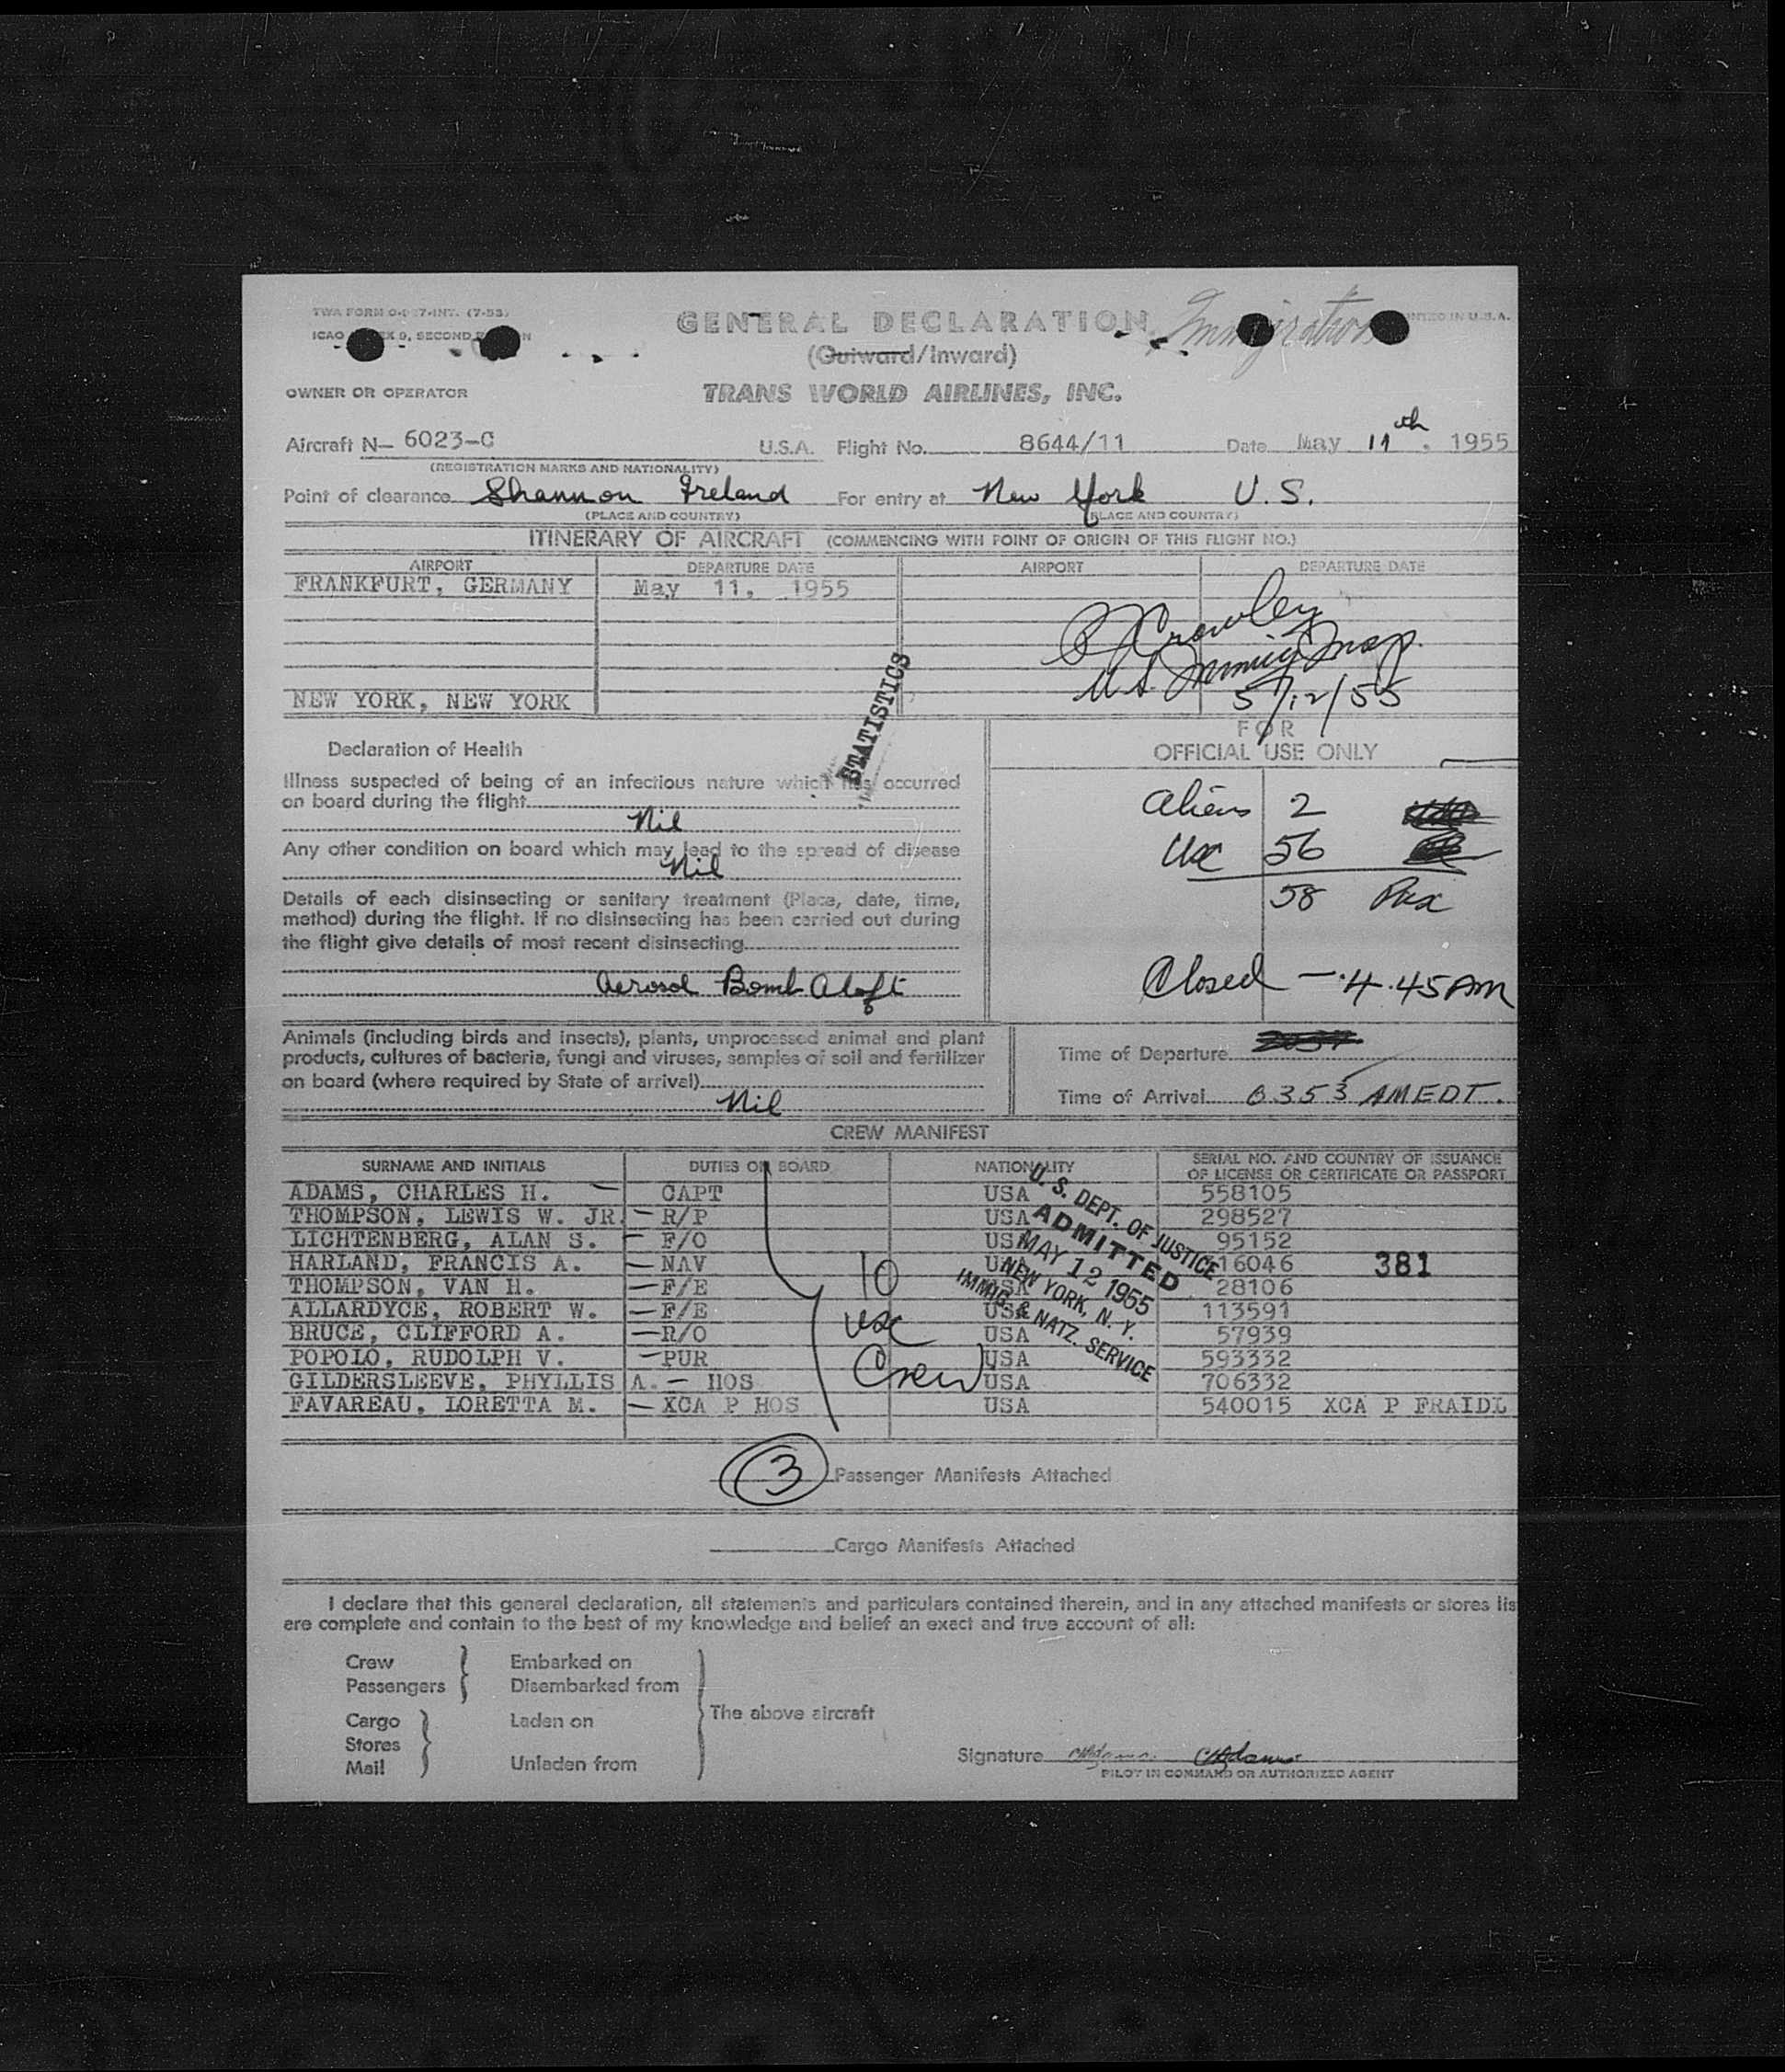 TWA FORM
(7-53)
ICAO
9, SECOND
GENERAL DECLARATION
Immigration
IN U.S.A.
(Outward/Inward)
OWNER OR OPERATOR
TRANS WORLD AIRLINES, INC.
Aircraft N- 6023-C U.S.A. Flight No. 8644/11 Date May 11th, 1955
(REGISTRATION MARKS AND NATIONALITY)
Point of clearance Shannon Ireland For entry at New York U.S.
(PLACE AND COUNTRY) (PLACE AND COUNTRY)
ITINERARY OF AIRCRAFT (COMMENCING WITH POINT OF ORIGIN OF THIS FLIGHT NO.)
AIRPORT DEPARTURE DATE AIRPORT DEPARTURE DATE
FRANKFURT, GERMANY May 11, 1955
Crowley
U.S. Immig Insp.
5/12/55
NEW YORK, NEW YORK
STATISTICS
Declaration of Health
Illness suspected of being of an infectious nature which has occurred
on board during the flight
Nil
Any other condition on board which may lead to the spread of disease
Nil
Details of each disinsecting or sanitary treatment (Place, date, time,
method) during the flight. If no disinsecting has been carried out during
the flight give details of most recent disinsecting
Aerosol Bomb Aloft
FOR
OFFICIAL USE ONLY
Aliens 2
USC 56
58 Pax
Closed - 4.45 AM
Animals (including birds and insects), plants, unprocessed animal and plant
products, cultures of bacteria, fungi and viruses, samples of soil and fertilizer
on board (where required by State of arrival)
Nil
Time of Departure
Time of Arrival 0353 AMEDT.
CREW MANIFEST
SURNAME AND INITIALS DUTIES ON BOARD NATIONALITY SERIAL NO. AND COUNTRY OF ISSUANCE
OF LICENSE OR CERTIFICATE OR PASSPORT
ADAMS, CHARLES H. - CAPT USA 558105
THOMPSON, LEWIS W. JR. - R/P USA 298527
LICHTENBERG, ALAN S. - F/O USA 95152
HARLAND, FRANCIS A. - NAV USA 16046 381
THOMPSON, VAN H. - F/E USA 28106
ALLARDYCE, ROBERT W. - F/E USA 113591
BRUCE, CLIFFORD A. - R/O USA 57939
POPOLO, RUDOLPH V. - PUR USA 593332
GILDERSLEEVE, PHYLLIS A. - HOS USA 706332
FAVAREAU, LORETTA M. - XCA P HOS USA 540015 XCA P FRAIDL
10
USC
Crew
U. S. DEPT. OF JUSTICE
ADMITTED
MAY 12 1955
NEW YORK, N. Y.
IMMIG. & NATZ. SERVICE
3 Passenger Manifests Attached
Cargo Manifests Attached
I declare that this general declaration, all statements and particulars contained therein, and in any attached manifests or stores lis
are complete and contain to the best of my knowledge and belief an exact and true account of all:
Crew Embarked on
Passengers Disembarked from
The above aircraft
Cargo Laden on
Stores
Mail Unladen from
Signature CHAdams CHAdams
PILOT IN COMMAND OR AUTHORIZED AGENT